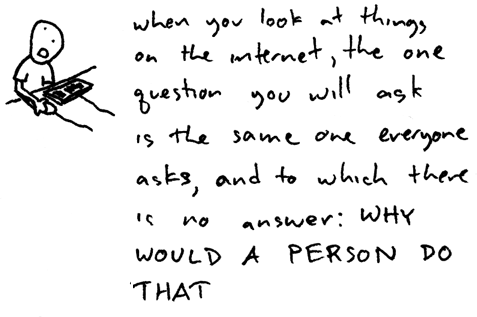 when you look at things
on the internet, the one
question you will ask
is the same one everyone
asks, and to which there
is no answer: WHY
WOULD A PERSON DO
THAT